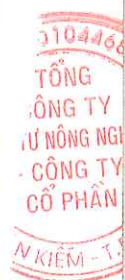 0104468
TỔNG
ÔNG TY
Ư NÔNG NGH
- CÔNG TY
CỔ PHẦN
N KIẾM - T.